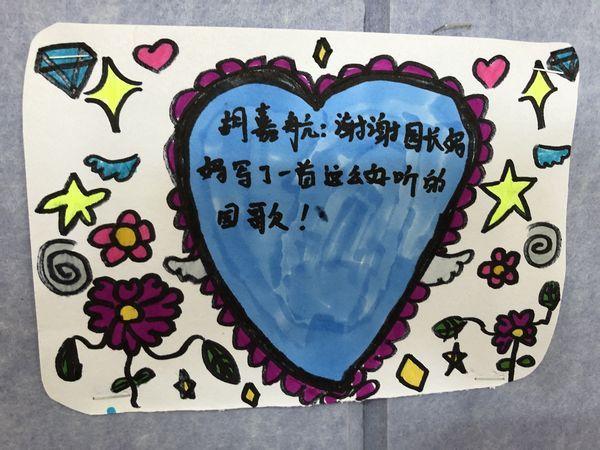 胡嘉航:谢谢园长妈
妈写了一首这么好听的
园歌!